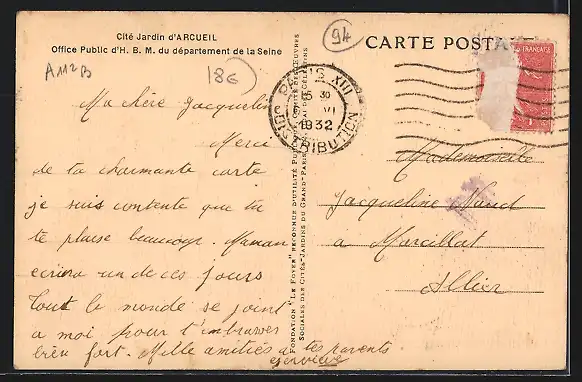 Cité Jardin d'ARCUEIL
Office Public d'H. B. M. du département de la Seine
A112B
18€
94
CARTE POSTA
FRANÇAISE
PARIS XIII
15 30
VI
1932
DISTRIBUTION
Ma chère Jacqueline
Merci
de ta charmante carte
je suis contente que tu
te plaise beaucoup. Maman
ecrira un de ces jours
Tout le monde se joint
a moi pour t'embrasser
bien fort. Mille amitiés a tes parents
FONDATION "LE FOYER" RECONNUE D'UTILITÉ PUBLIQUE
SOCIALES DES CITÉS-JARDINS DU GRAND-PARIS
DES CÉLESTINS
Mademoiselle
Jacqueline Naud
a Marcillat
Allier